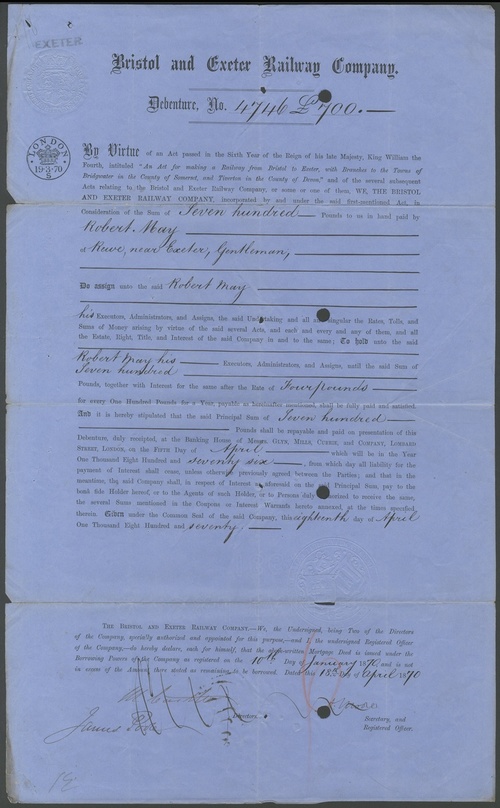 EXETER
Bristol and Exeter Railway Company.
Debenture, No. 4746 £700.—
LONDON
19·3·70
S
By Virtue of an Act passed in the Sixth Year of the Reign of his late Majesty, King William the
Fourth, intituled "An Act for making a Railway from Bristol to Exeter, with Branches to the Towns of
Bridgwater in the County of Somerset, and Tiverton in the County of Devon," and of the several subsequent
Acts relating to the Bristol and Exeter Railway Company, or some or one of them, WE, THE BRISTOL
AND EXETER RAILWAY COMPANY, incorporated by and under the said first-mentioned Act, in
Consideration of the Sum of Seven hundred — Pounds to us in hand paid by
Robert May
of Rewe, near Exeter, Gentleman,
Do assign unto the said Robert May
his Executors, Administrators, and Assigns, the said Undertaking and all and singular the Rates, Tolls, and
Sums of Money arising by virtue of the said several Acts, and each and every and any of them, and all
the Estate, Right, Title, and Interest of the said Company in and to the same; To hold unto the said
Robert May his — Executors, Administrators, and Assigns, until the said Sum of
Seven hundred
Pounds, together with Interest for the same after the Rate of Four pounds —
for every One Hundred Pounds for a Year, payable as hereinafter mentioned, shall be fully paid and satisfied.
And it is hereby stipulated that the said Principal Sum of Seven hundred —
Pounds shall be repayable and paid on presentation of this
Debenture, duly receipted, at the Banking House of Messrs. GLYN, MILLS, CURRIE, and COMPANY, LOMBARD
STREET, LONDON, on the FIFTH DAY of April — which will be in the Year
One Thousand Eight Hundred and seventy six —, from which day all liability for the
payment of Interest shall cease, unless otherwise previously agreed between the Parties; and that in the
meantime, the said Company shall, in respect of Interest as aforesaid on the said Principal Sum, pay to the
bonâ fide Holder hereof, or to the Agents of such Holder, or to Persons duly entitled to receive the same,
the several Sums mentioned in the Coupons or Interest Warrants hereto annexed, at the times specified
therein. Given under the Common Seal of the said Company, this eighteenth day of April
One Thousand Eight Hundred and seventy,
THE BRISTOL AND EXETER RAILWAY COMPANY.—We, the Undersigned, being Two of the Directors
of the Company, specially authorized and appointed for this purpose,—and I the undersigned Registered Officer
of the Company,—do hereby declare, each for himself, that the above-written Mortgage Deed is issued under the
Borrowing Powers of the Company as registered on the 10th Day of January 1870, and is not
in excess of the Amount there stated as remaining to be borrowed. Dated this 18th day of April 1870
James
Directors.
Secretary, and
Registered Officer.